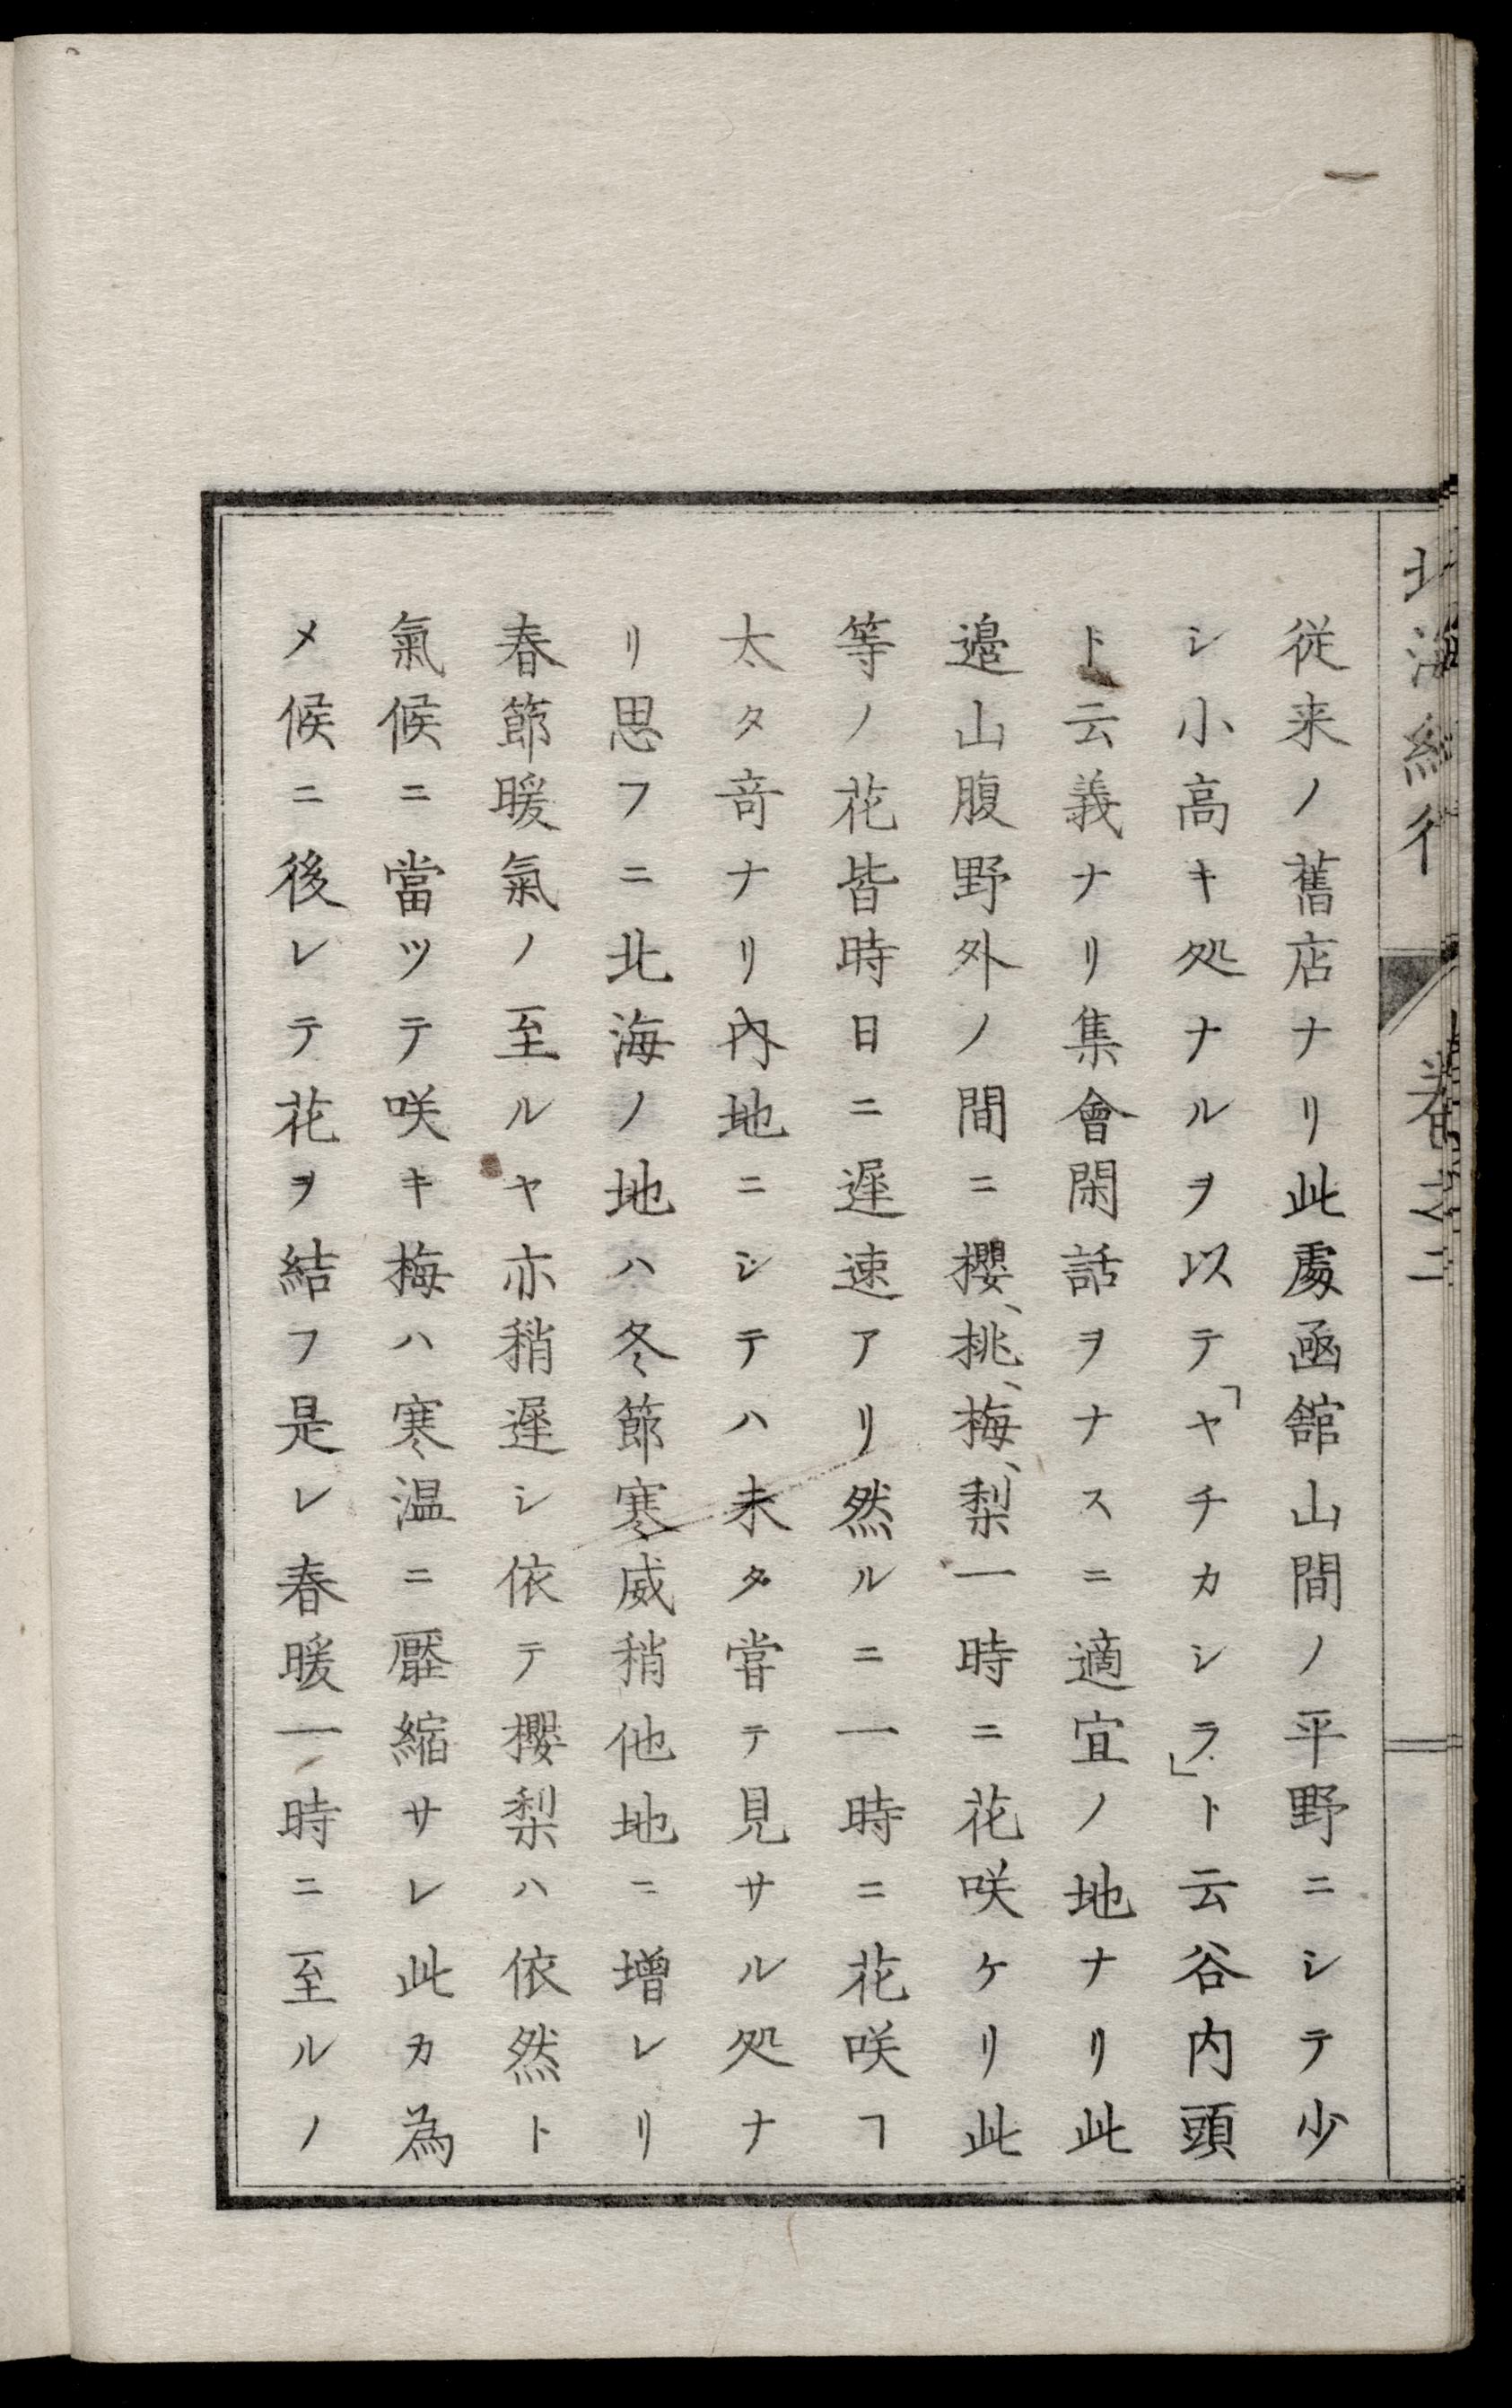 北海紀行 巻之二
従来ノ舊店ナリ此處凾舘山間ノ平野ニシテ少
シ小高キ処ナルヲ以テ「ヤチカシラ」ト云谷内頭
ト云義ナリ集會閑話ヲナスニ適宜ノ地ナリ此
邉山腹野外ノ間ニ櫻、挑、梅、梨一時ニ花咲ケリ此
等ノ花皆時日ニ遅速アリ然ルニ一時ニ花咲ヿ
太タ竒ナリ內地ニシテハ未タ嘗テ見サル処ナ
リ思フニ北海ノ地ハ冬節寒威稍他地ニ増レリ
春節暖氣ノ至ルヤ亦稍遅シ依テ櫻梨ハ依然ト
氣候ニ當ツテ咲キ梅ハ寒温ニ壓縮サレ此カ為
メ候ニ後レテ花ヲ結フ是レ春暖一時ニ至ルノ